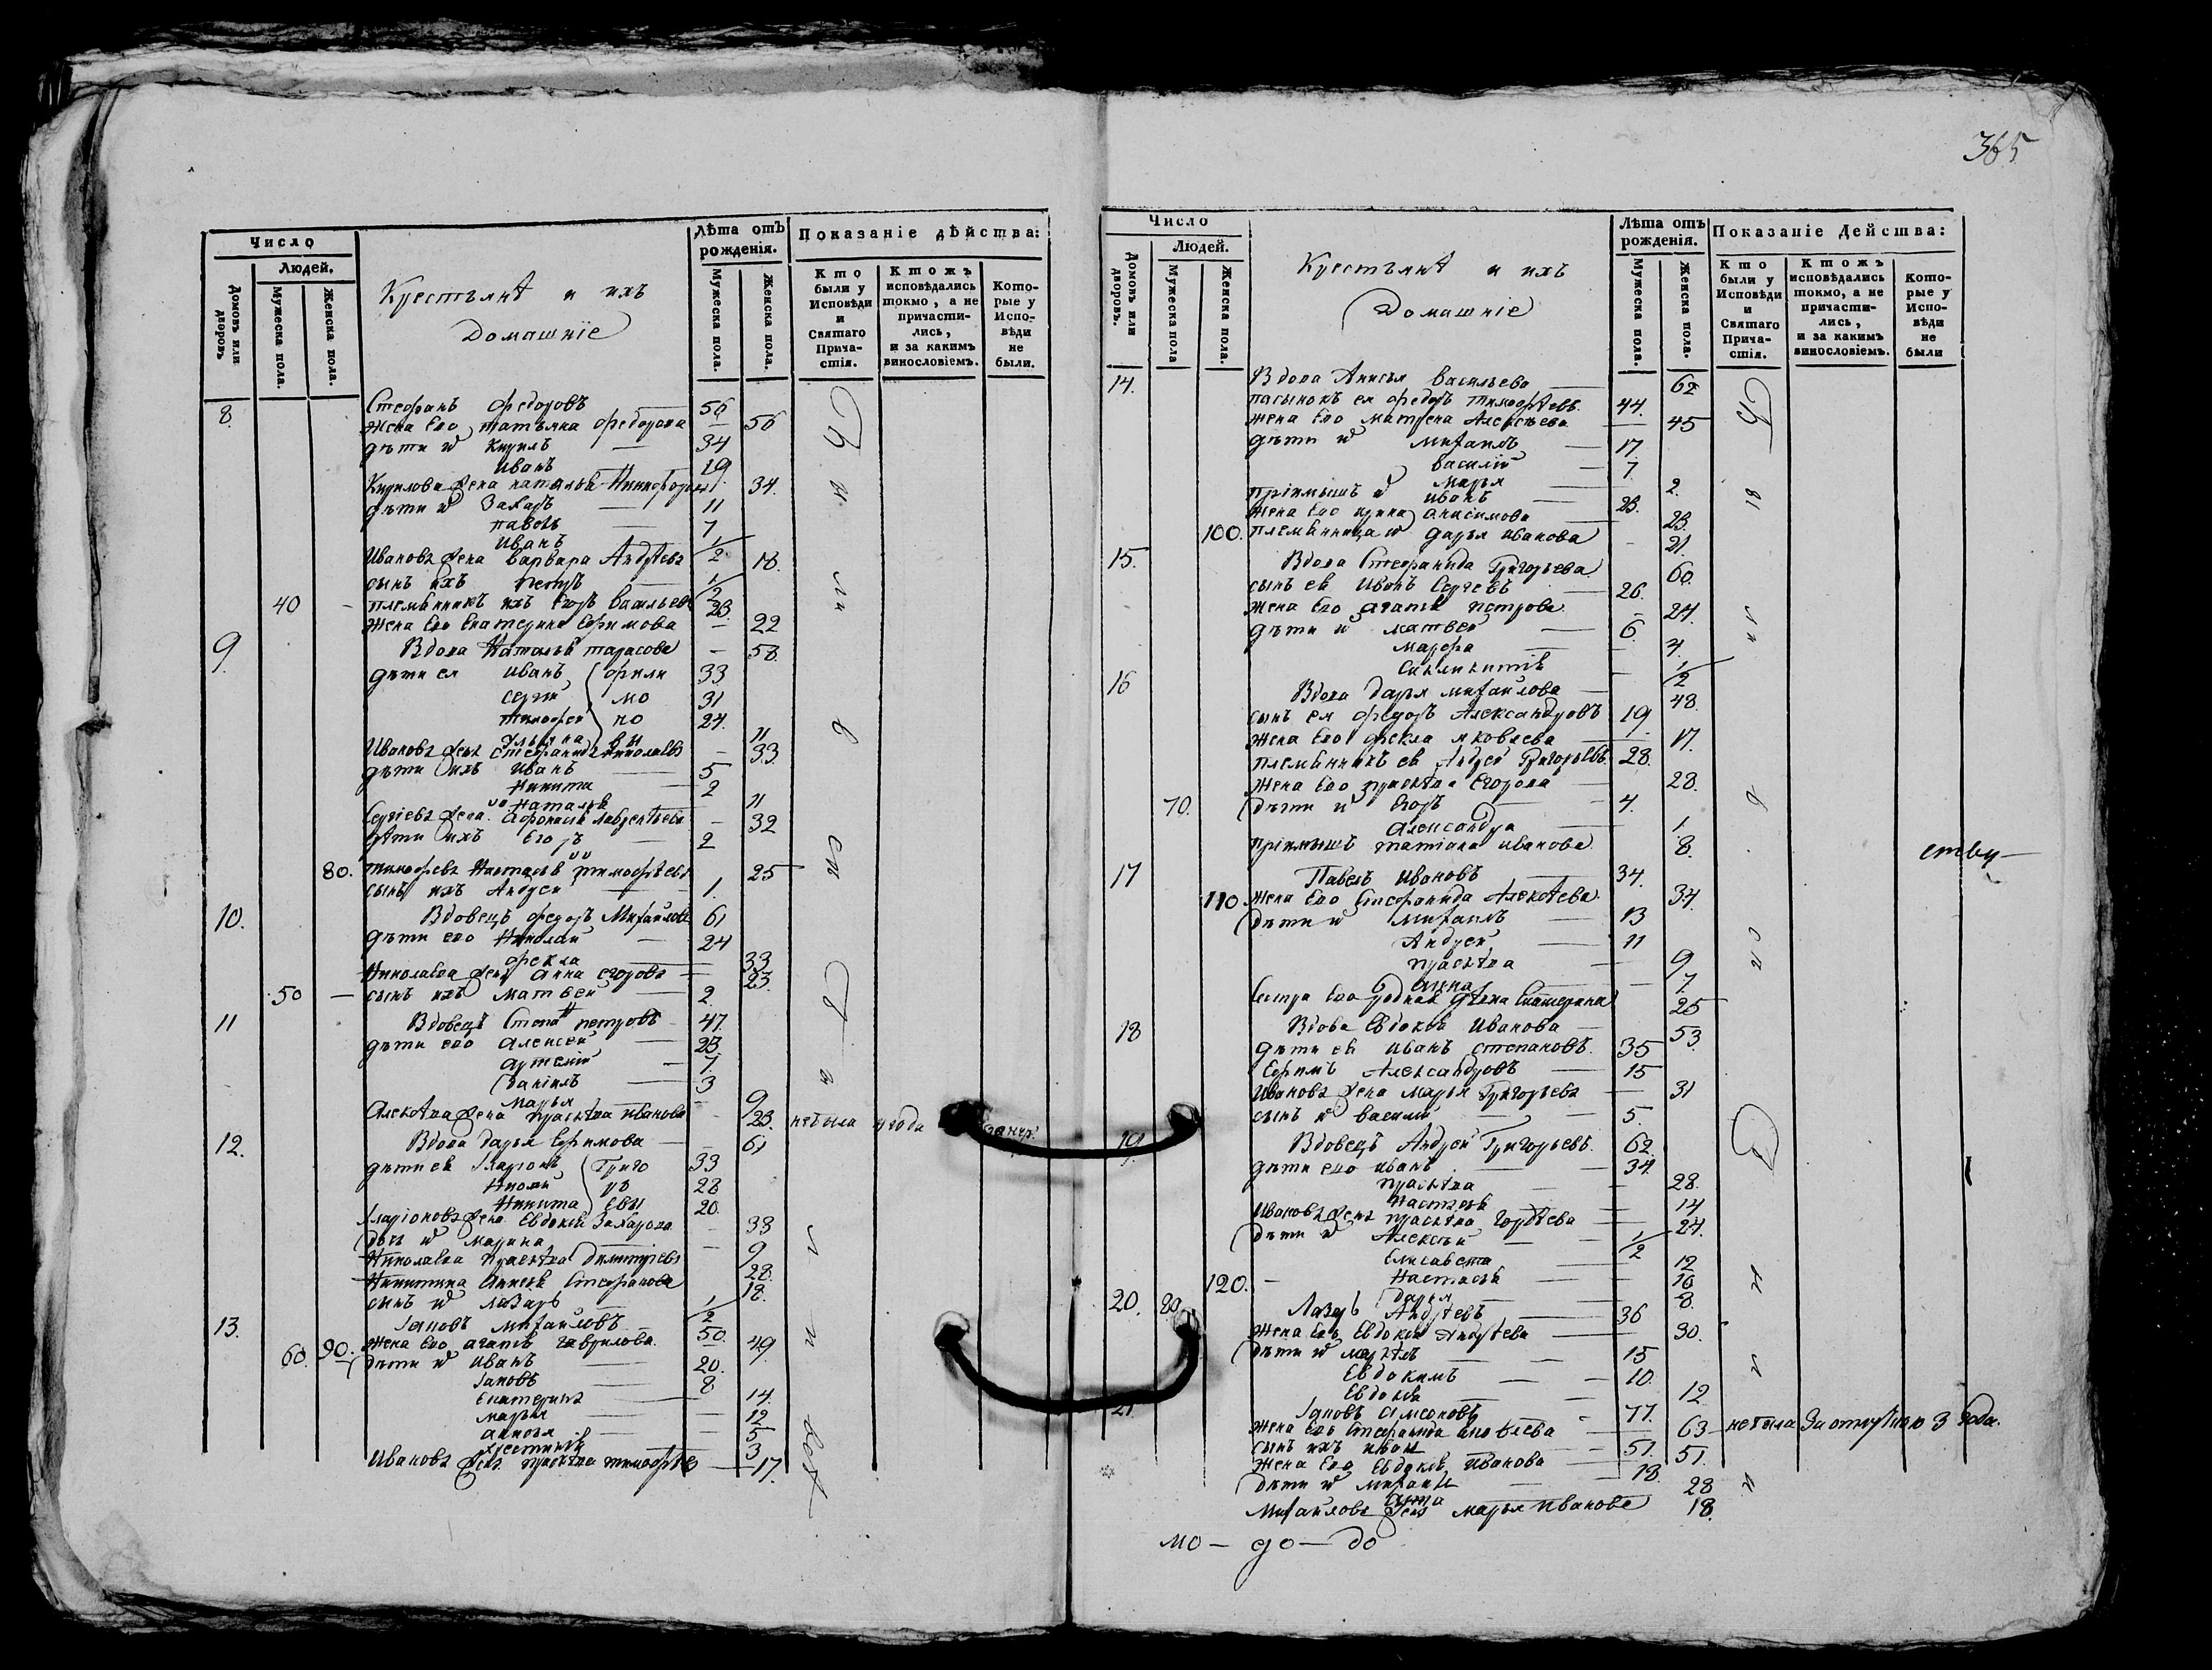 365
Число
Людей.
Домовъ или дворовъ
Мужеска пола.
Женска пола.
Крестьянѣ и ихъ
Домашніе
Лѣта отъ рожденія.
Мужеска пола.
Женска пола.
Показаніе дѣйства:
Кто были у Исповѣди и Святаго Прича-стія.
Ктожъ исповѣдались токмо, а не причасти-лись, и за какимъ винословіемъ.
Кото-рые у Испо-вѣди не были.
8 Стефанъ Федоровъ 56
жена Его татьяна Федорова 56
дѣти их Кирилъ 34
Иванъ 19
Кирилова жена наталья 34.
дѣти их Захаръ 11
павелъ 7
Иванъ 1/2
Иванова жена варвара Андрѣева 18.
сынъ ихъ петръ 1/2
40 племянникъ ихъ Егоръ васильевъ 23.
жена Его Екатерина Ефимова 22
9. Вдова Наталья тарасова 58.
дѣти ея иванъ фили 33
сергѣй мо 31
тимофей но 24.
ульяна вы 11
Иванова жена стефанида николаева 33
дѣти ихъ иванъ 5
никита 2
наталья 11
Сергѣева жена 32
дѣти ихъ Егоръ 2
80. тимофѣева Настасья тимофѣева 25
сынъ ихъ Андрей 1.
10. Вдовецъ федоръ Михайловъ 61
дѣти его Николай 24
фекла 33
Николаева жена Анна егорова 23.
50 сынъ ихъ матвей 2.
11 Вдовецъ петровъ 47.
дѣти его Алексей 23
артемій 7.
Даніилъ 3
марья 9
Алексѣева жена праскѣва иванова 23. небыла
12. Вдова дарья Ефимова 61
дѣти ея Иларіонъ Григо 33
Николай рь 28
Никита Евы 20.
Иларіонова жена Евдокія Захарова 33
дочь их марина 9
Николаева праскѣва Димитріева 28.
Никитина Анисья Стефанова 18.
сынъ их Лазарь 1/2
13. Іаковъ михайловъ 50.
60. 90. жена Его агафья гаврилова 49.
дѣти их иванъ 20.
Іаковъ 8
Екатерина 14.
марья 12
5
3
Иванова жена праскѣва тимофѣева 17.
Число
Людей.
Домовъ или дворовъ.
Мужеска пола
Женска пола.
Крестьянѣ и ихъ
Домашніе
Лѣта отъ рожденія.
Мужеска пола.
Женска пола.
Показаніе Дейсшва:
Кто были у Исповѣди и Святаго Прича-стія.
Ктожъ исповѣдались токмо, а не причасти-лись, и за какимъ винословіемъ.
Кото-рые у Испо-вѣди не были
14. Вдова Анисья васильева 62
пасынокъ ея федоръ тимофѣевъ 44.
жена Его матрена Алексѣева 45
дѣти их михаилъ 17.
василій 7.
марья 2.
пріимышъ их иванъ 23.
жена Его ирина анисимова 23.
100. племянница их дарья иванова 21.
15. Вдова Стефанида Григорьева 60.
сынъ ея иванъ Сергѣевъ 26.
жена Его агафья петрова 24.
дѣти их матвей 6.
марфа 4.
1/2
16 Вдова дарья михайлова 48.
сынъ ея федоръ Александровъ 19.
жена Его фекла яковлева 17.
племянникъ ея Андрей Григорьевъ 28.
жена Его праскѣва Егорова 28.
70. дѣти их Егоръ 4.
Александра 1.
пріимышъ татіана иванова 8.
17 Павелъ Ивановъ 34.
110 жена Его Стефанида Алексѣева 34
дѣти их михаилъ 13
Андрей 11
праскѣва 9
анна 7.
Сестра Его родная Екатерина 25
18 Вдова Евдокія Иванова 53
дѣти ея иванъ степановъ 35
Ефимъ Александровъ 15
Иванова жена марья Григорьева 31
сынъ их василій 5.
19. Вдовецъ Андрей Григорьевъ 62.
дѣти его иванъ 34.
праскѣва 28.
Настасья 14
Иванова жена праскѣва гордѣева 24.
дѣти их Алексѣй 1/2
Елисавета 12
120. Настасья 10
дарья 8.
20. 80. Лазарь Андрѣевъ 36
жена Его Евдокія Андрѣева 30.
дѣти их 15
Евдокимъ 10.
Евдокія 12
21. Іаковъ симеоновъ 77.
жена Его Стефанида 63 небыла за отлучкою 3 года.
сынъ ихъ иванъ 51.
жена Его Евдокія Иванова 51.
дѣти их михаилъ 18.
28
Михайлова жена марья иванова 18.
мо — до — до